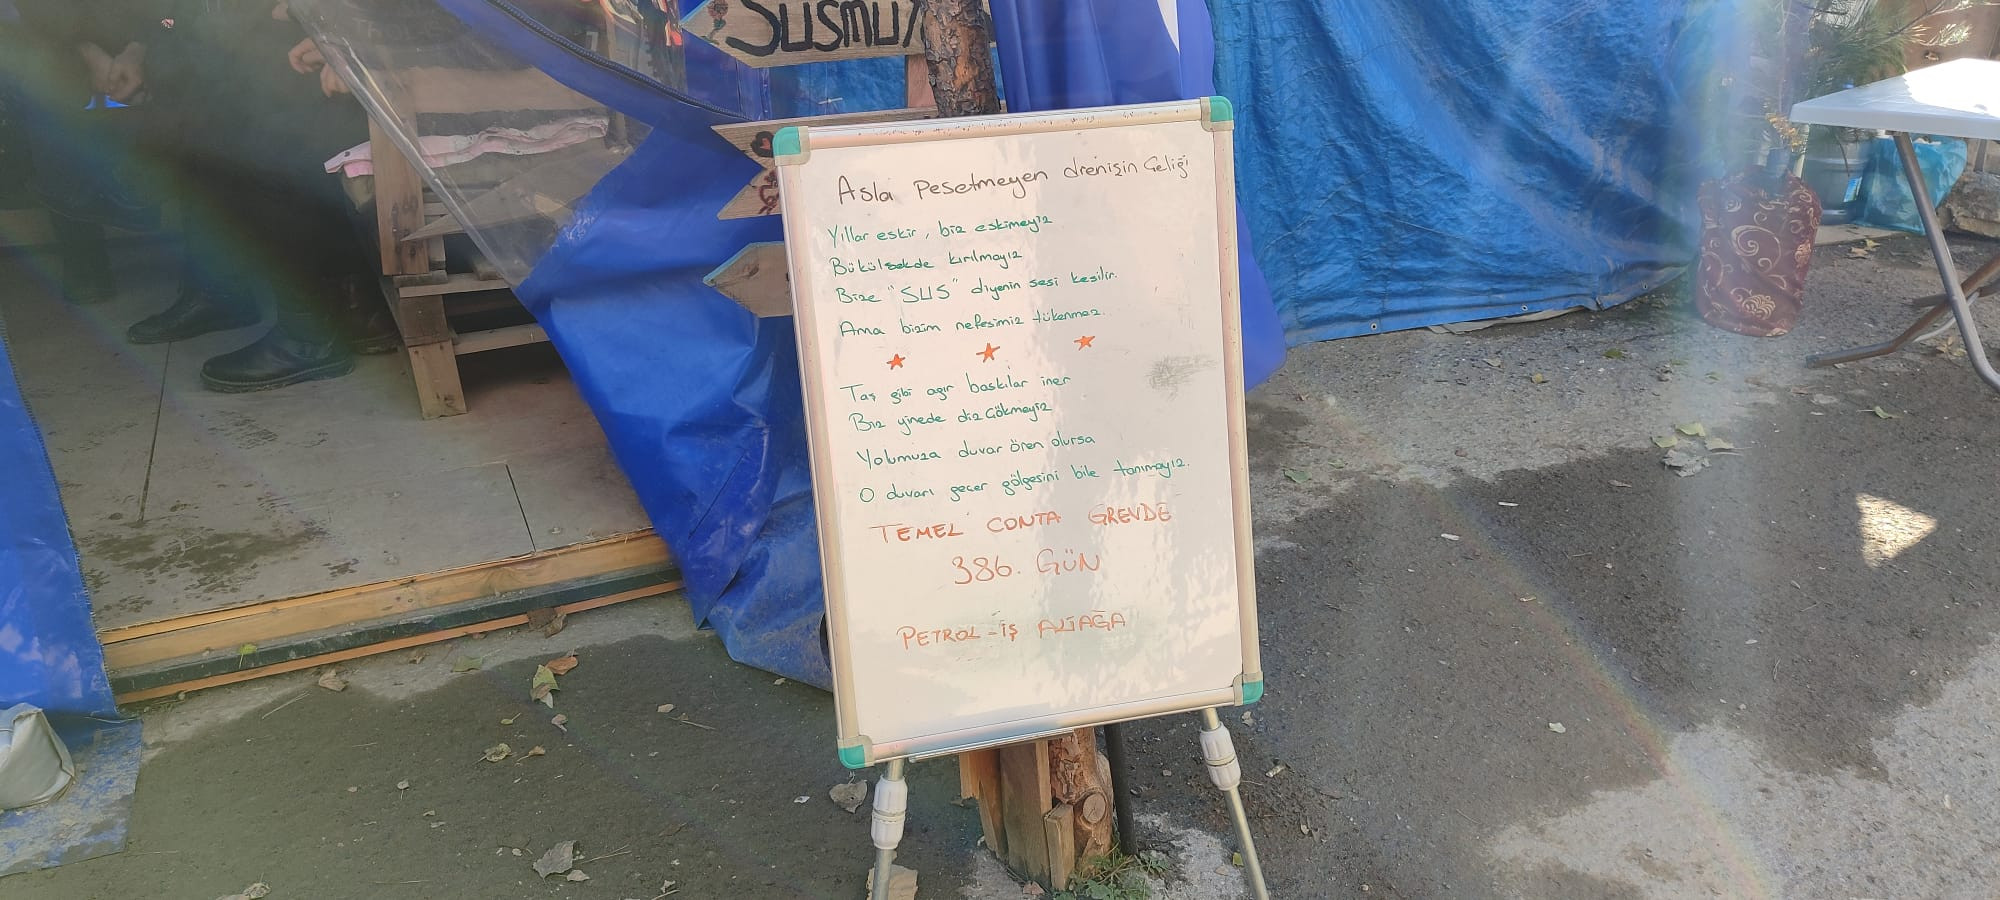 SUSMUY
Asla pesetmeyen drenişin Geliği
Yıllar eskir, biz eskimeyiz
Bükülsekde kırılmayız
Bize "SUS" diyenin sesi kesilir.
Ama bizim nefesimiz tükenmez.
Taş gibi ağır baskılar iner
Biz yinede diz çökmeyiz
Yolumuza duvar ören olursa
O duvarı geçer gölgesini bile tanımayız.
TEMEL CONTA GREVDE
386. GÜN
PETROL-İŞ ALİAĞA